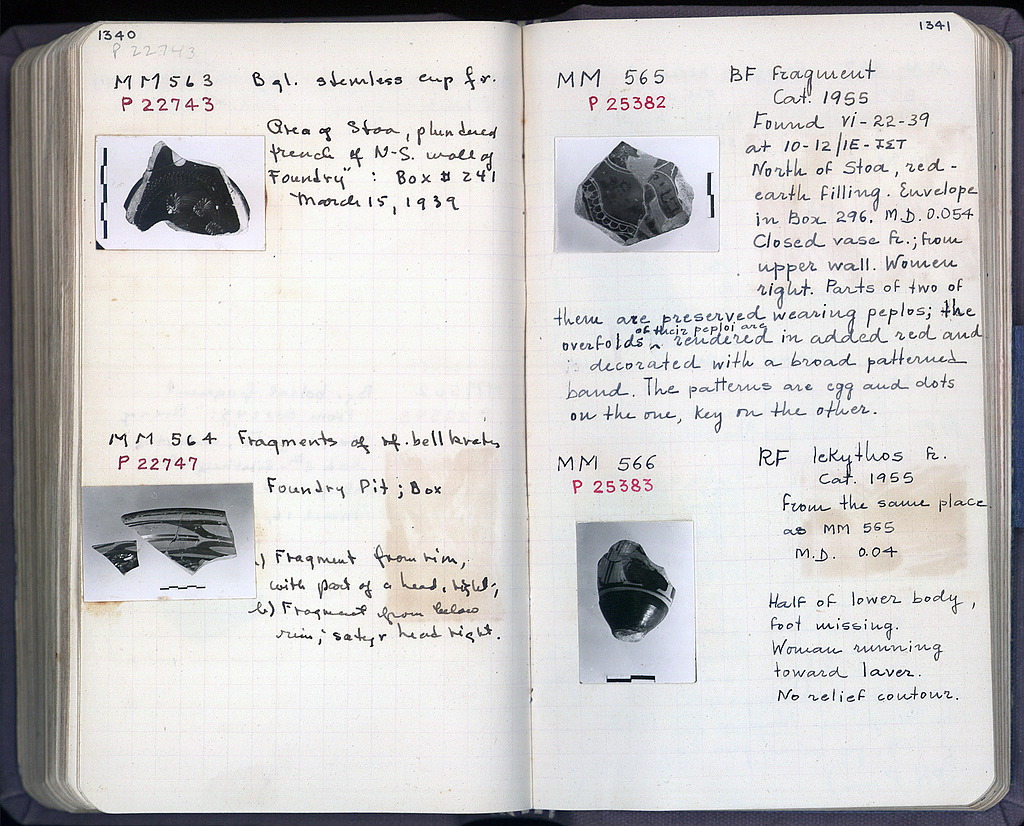 1340
P 22743
MM 563 Bgl. stemless cup fr.
P 22743
Area of Stoa, plundered
trench of N-S. wall of
Foundry" : Box # 241
March 15, 1939
MM 564 Fragments of rf. bell krater
P 22747
Foundry Pit; Box
a) Fragment from rim,
with part of a head, right;
b) Fragment from below
rim; satyr head right.
1341
MM 565 BF fragment
P 25382 Cat. 1955
Found VI-22-39
at 10-12/ΙΕ-ΙΣΤ
North of Stoa, red-
earth filling. Envelope
in Box 296. M.D. 0.054
Closed vase fr.; from
upper wall. Women
right. Parts of two of
them are preserved wearing peplos; the
overfolds of their peploi are rendered in added red and
is decorated with a broad patterned
band. The patterns are egg and dots
on the one, key on the other.
MM 566 RF lekythos fr.
P 25383 Cat. 1955
From the same place
as MM 565
M.D. 0.04
Half of lower body,
foot missing.
Woman running
toward laver.
No relief contour.